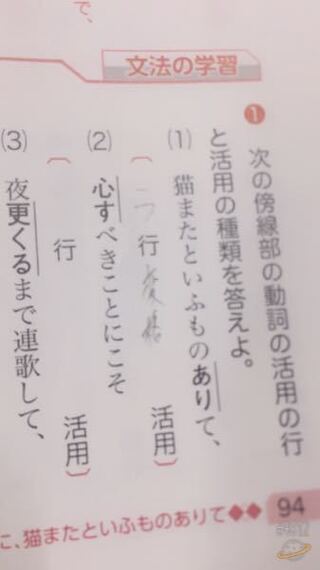 で、
文法の学習
❶ 次の傍線部の動詞の活用の行
と活用の種類を答えよ。
(1) 猫またといふものありて、
〔 行 変格 活用〕
(2) 心すべきことにこそ
〔 行 活用〕
(3) 夜更くるまで連歌して、
94
に、猫またといふものありて◆◆